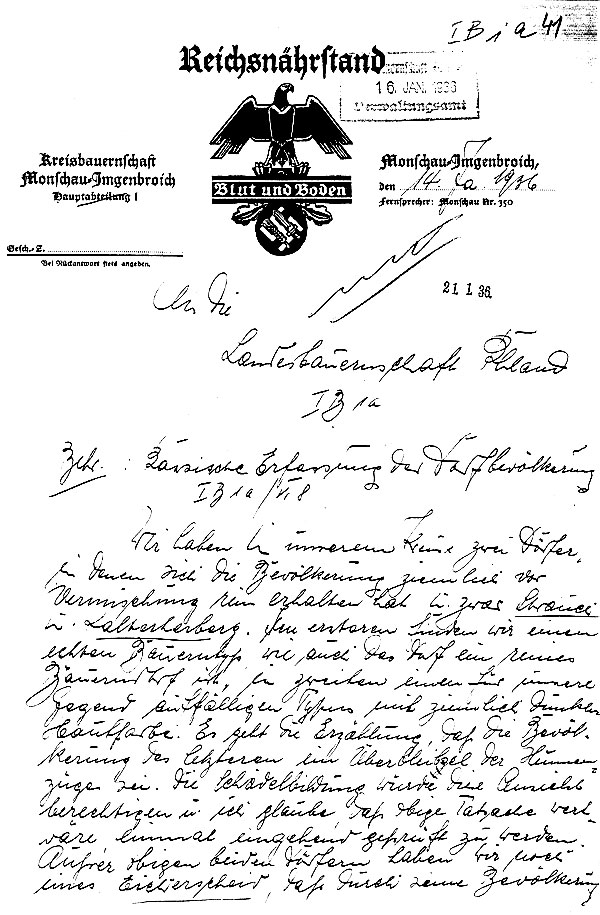 I B i a 41
Reichsnährstand
16. JAN. 1936
Verwaltungsamt
Kreisbauernschaft
Monschau-Imgenbroich
Hauptabteilung I
Blut und Boden
Monschau-Imgenbroich,
den 14. Ja 1936
Fernsprecher: Monschau Nr. 350
Gesch.-Z.
Bei Rückantwort stets angeben.
21. 1. 36.
An die
Landesbauernschaft Rhland
I B 1a
Betr. : Rassische Erfassung der Dorfbevölkerung
I B 1a / VI 8
Wir haben in unserem Kreise zwei Dörfer,
in denen sich die Bevölkerung ziemlich vor
Vermischung rein erhalten hat u. zwar Strauch
u. Kalterherberg. Im ersteren finden wir einen
echten Bauerntyp wie auch das Dorf ein reines
Bauerndorf ist, im zweiten einen für unsere
Gegend auffälligen Typus mit ziemlich dunkler
Hautfarbe. Es geht die Erzählung, daß die Bevöl-
kerung des letzteren ein Überbleibsel der Hunnen-
züge sei. Die Schädelbildung würde diese Ansicht
berechtigen u. ich glaube, daß obige Tatsache wert
wäre einmal eingehend geprüft zu werden.
Außer obigen beiden Dörfern haben wir noch
eines Eicherscheid, daß durch seine Bevölkerung